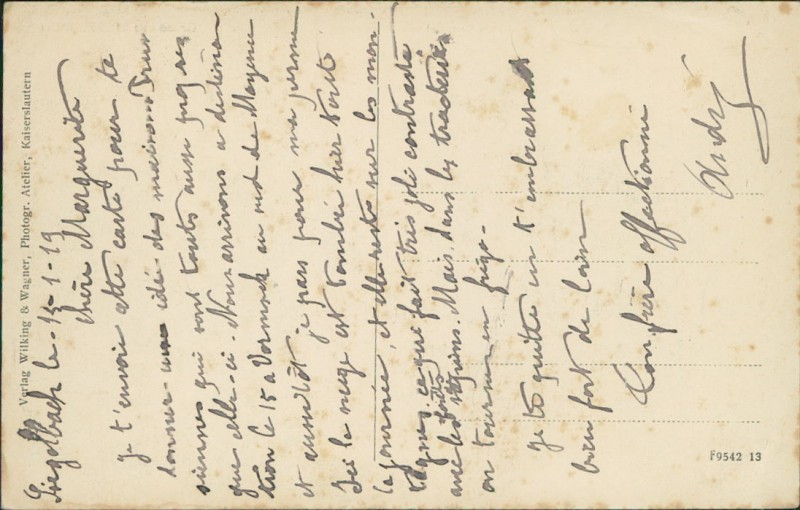 Siegelbach le 13-1-19
Chère Marguerite
je t'envoie cette carte pour te
donner une idée des maisons Prus
siennes qui sont toutes aussi propres
que celle-ci. Nous arrivons a destina
tion le 15 a au sud de Mayence
et aussitôt je pars pour ma perme
Ici la neige est tombée hier toute
la journée, et elle reste sur les mon-
tagnes ce que fait très joli contraste
avec les forêts de sapins. Mais dans les
on tourne en frigo.
je te quitte en t'embrassant
bien fort de loin
Ton frère affectionné
André
Verlag Wilking & Wagner, Photogr. Atelier, Kaiserslautern
F9542 13